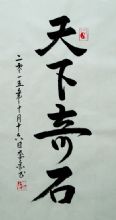 天下奇石
二零一五年十月十六日